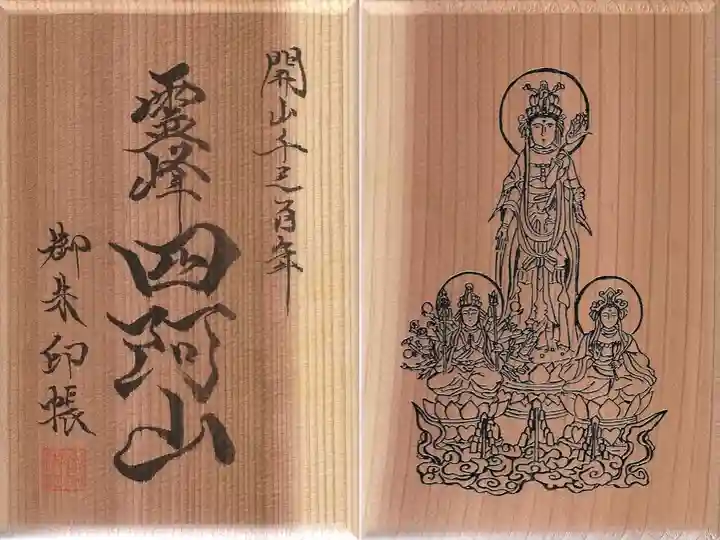 開山千三百年
霊峰四阿山
御朱印帳